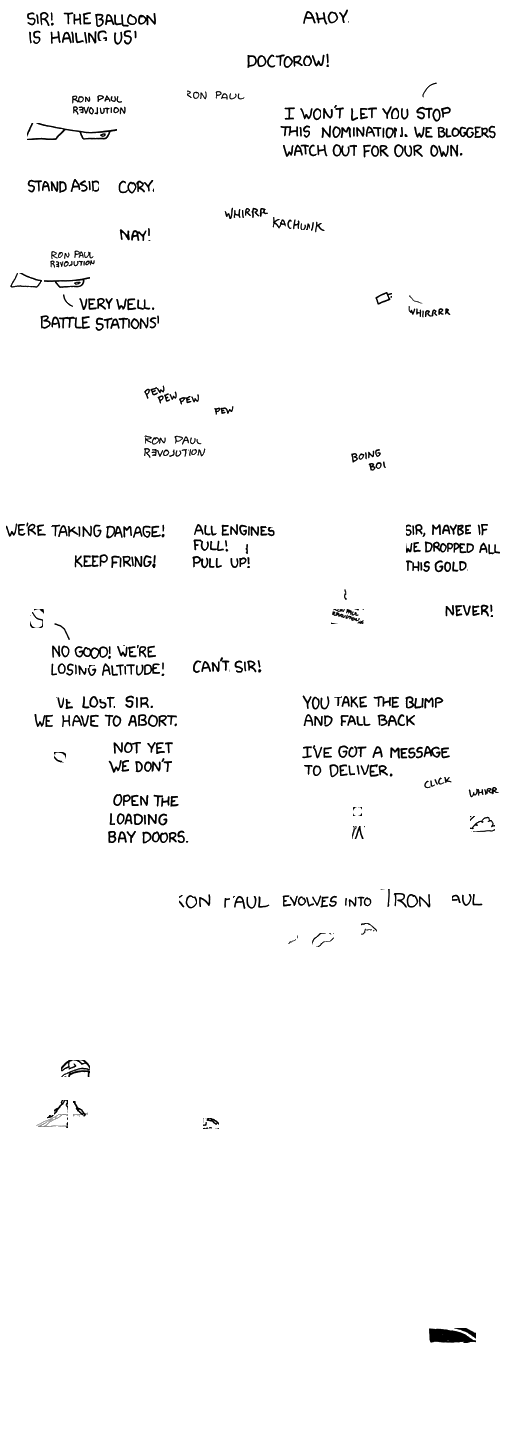 SIR! THE BALLOON
IS HAILING US!
AHOY.
DOCTOROW!
RON PAUL
REVOLUTION
RON PAUL
I WON'T LET YOU STOP
THIS NOMINATION. WE BLOGGERS
WATCH OUT FOR OUR OWN.
STAND ASID CORY.
NAY!
WHIRRR
KACHUNK
RON PAUL
REVOLUTION
VERY WELL.
BATTLE STATIONS!
WHIRRRR
PEW
PEW PEW
PEW
RON PAUL
REVOLUTION
BOING
BOI
WE'RE TAKING DAMAGE!
KEEP FIRING!
ALL ENGINES
FULL!
PULL UP!
SIR, MAYBE IF
WE DROPPED ALL
THIS GOLD
NEVER!
NO GOOD! WE'RE
LOSING ALTITUDE!
CAN'T SIR!
LOST. SIR.
WE HAVE TO ABORT.
NOT YET
WE DON'T
OPEN THE
LOADING
BAY DOORS.
YOU TAKE THE BLIMP
AND FALL BACK
I'VE GOT A MESSAGE
TO DELIVER.
CLICK
WHIRR
RON PAUL EVOLVES INTO IRON AUL